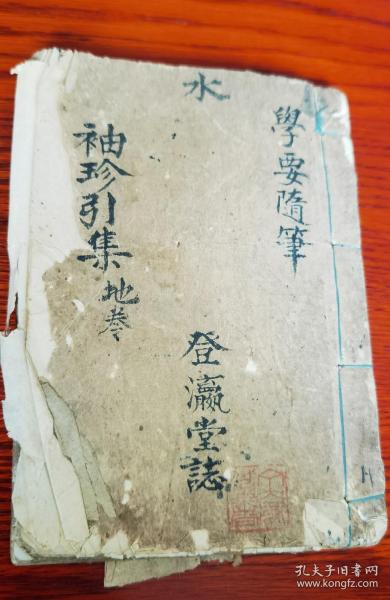 學要隨筆
水
登瀛堂誌
袖珍引集 地卷
孔夫子旧书网
www.kongfz.com